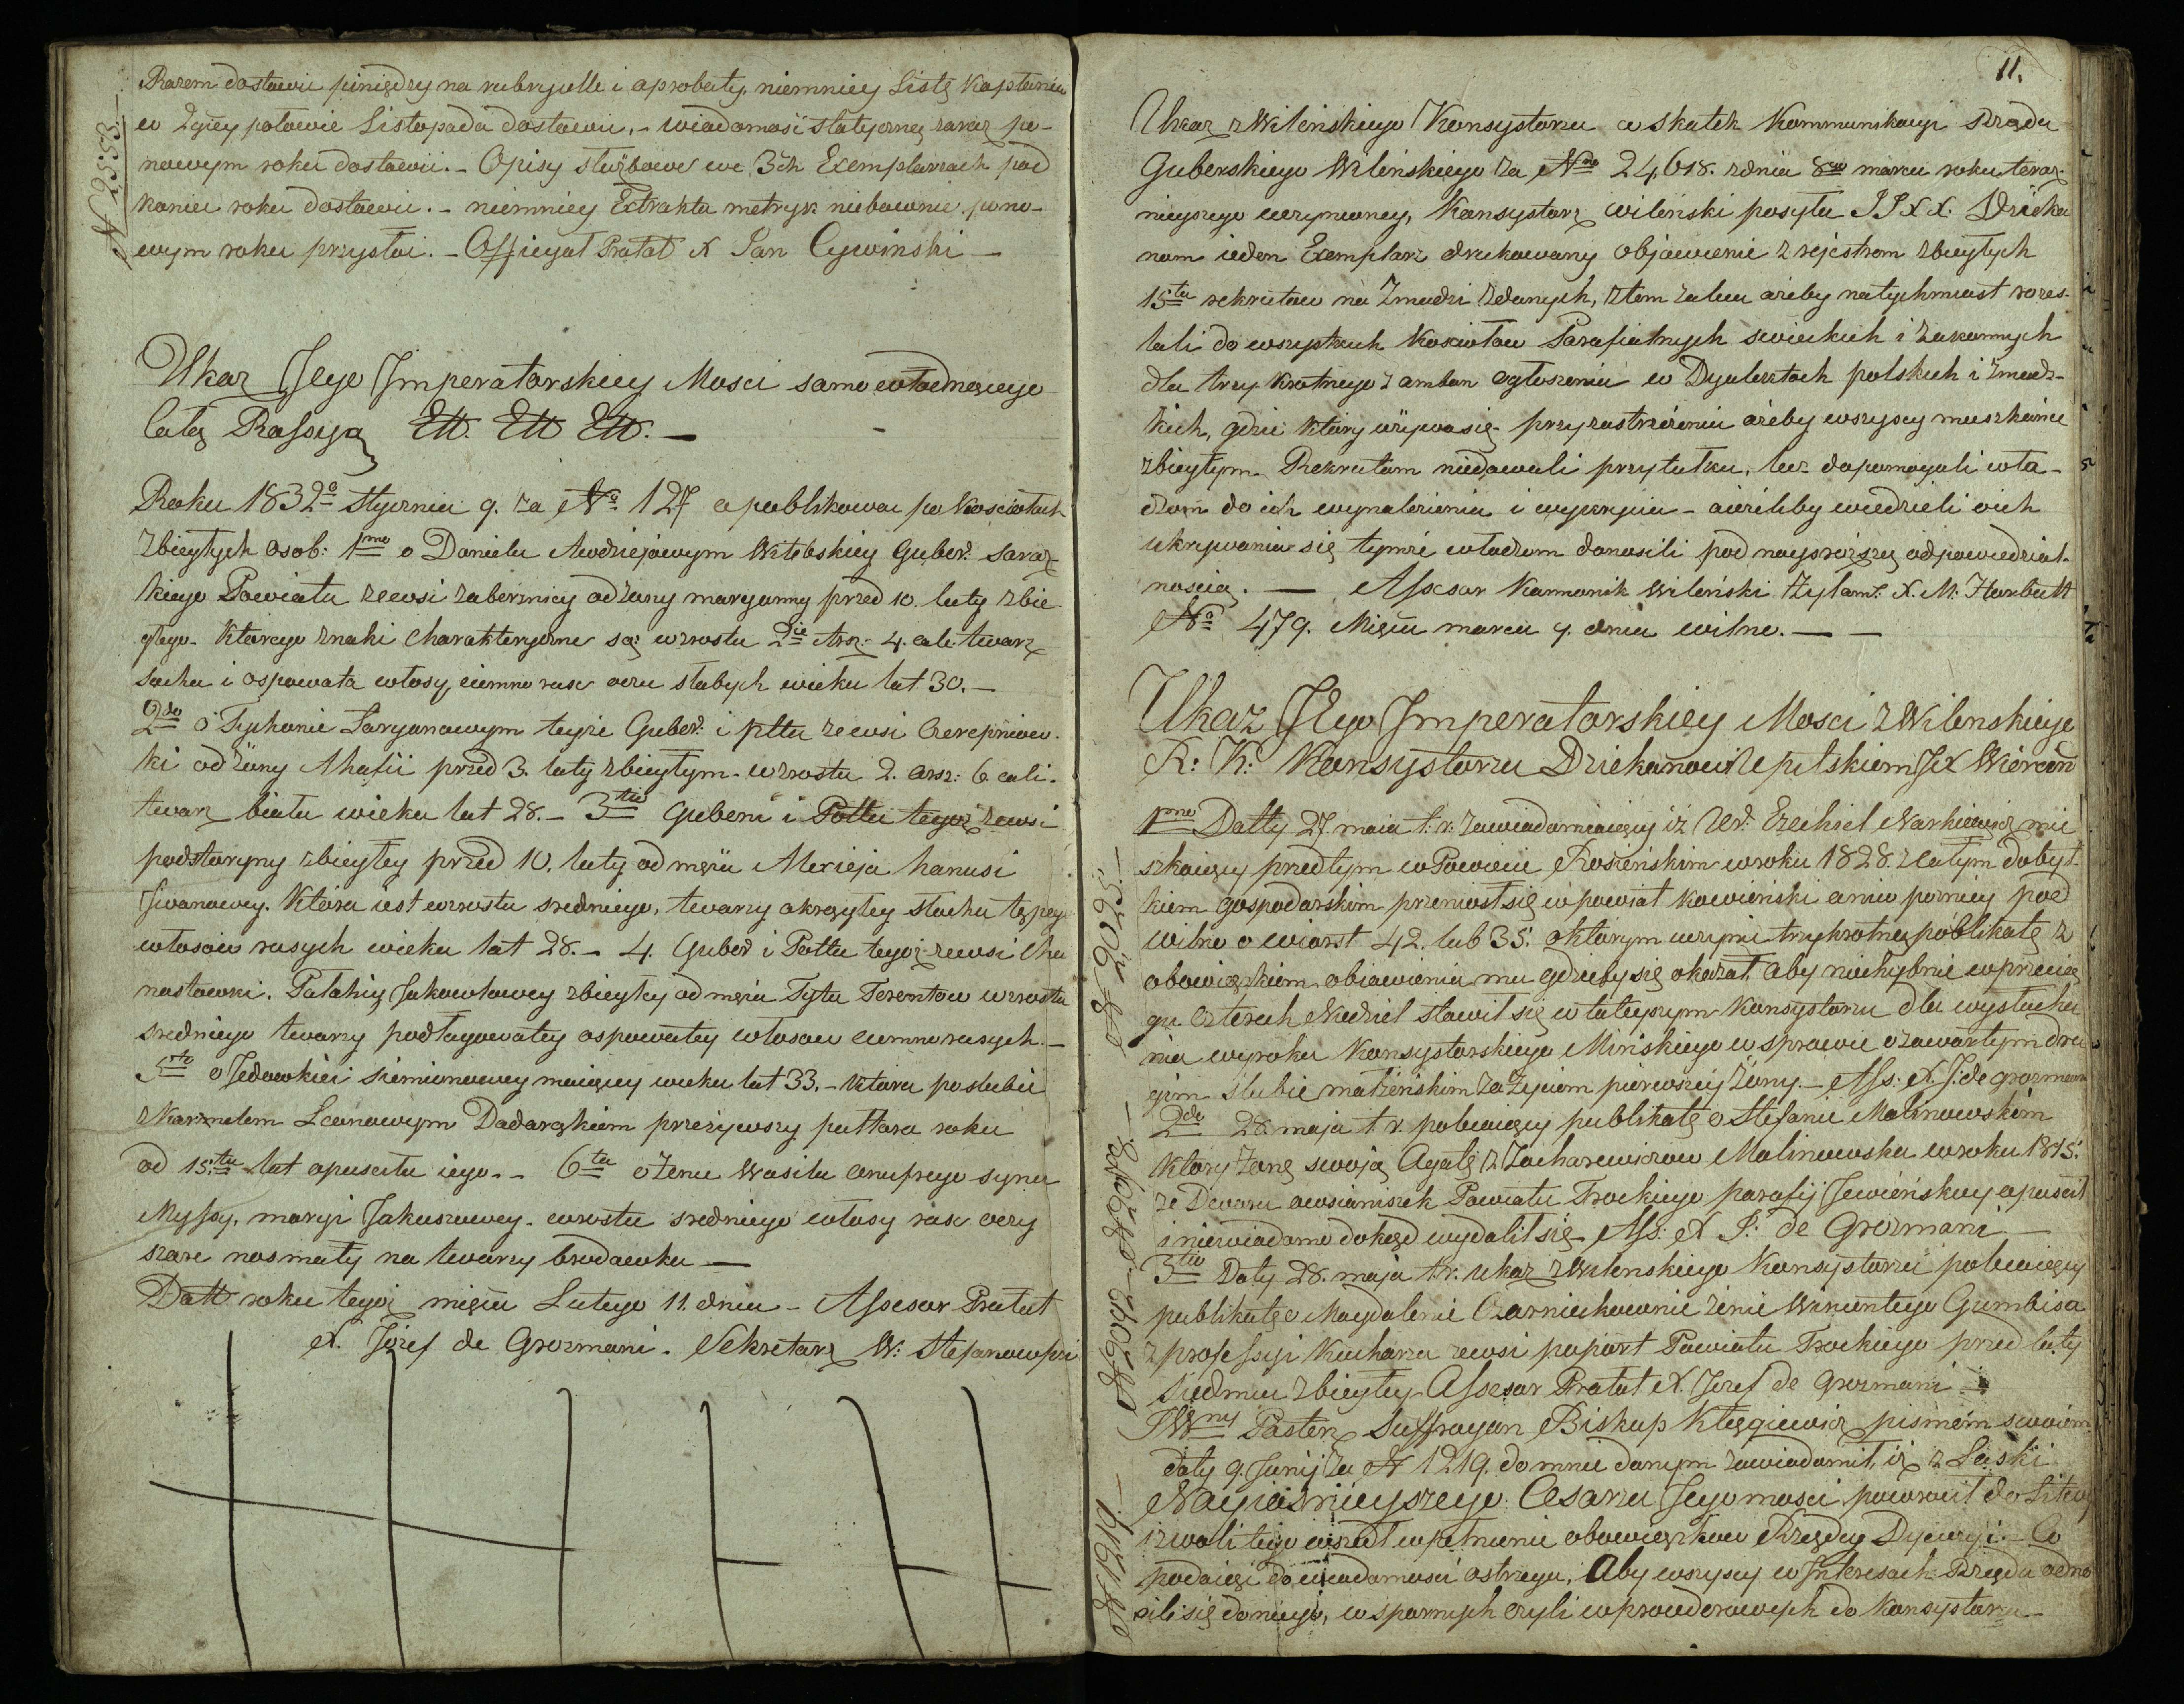 Razem dostawić pieniędzy na rubrycelle i aprobaty, niemniey Listę Kapłanów
w 2giey połowie Listopada dostawić, - wiadomość statyczną zaraz po
nowym roku dostawić. - Opisy służbowe we 3ch Exemplarzach pod
koniec roku dostawić. - niemniey Extrakta metryk niebawnie po no-
wym roku przysłać. - Officyał Prałat X Jan Cywinski -
N 2553
Ukaz Jego Imperatorskiey Mosci samowładnącego
Całą Rossyą Ett. Ett Ett. -
Roku 1832o Stycznia 9. za No 127 opublikować po Kościołach
Zbiegłych osob: 1mo o Danielu Awdziejowym Witebskiey Guber. Suraz
kiego Powiatu zewsi zabereznicy od żony maryanny przed 10. laty zbie
głego. Którego znaki Charakteryczne są: wzrostu 2ie Arsz. 4. cale twarz
sucha i ospowata włosy ciemno ruse oczu słabych wieku lat 30. -
2do o Tychonie Łaryonowym teyże Guber. i pttu zewsi Czerepniow-
ki od żony Ahafii przed 3. laty zbiegłym. wzrostu 2. arsz: 6 cali.
twarz biała wieku lat 28. - 3tio Guberni i Pottu tegoż zewsi
podstaryny zbiegłey przed 10. laty od męża Alexieja hanusi
Iwanowey. Która iest wzrostu sredniego, twarzy okrągłey słuchu tępego
włosów rusych wieku lat 28. - 4. Guber i Pottu tegoż zewsi Cha
nostawki. Pałahiy Jakowlowey zbiegłey od męża Tytu Terentow wzrostu
sredniego twarzy podługowatey ospowatey włosow ciemno rusych. -
5to o Jedowkiei Siemionowey maiącey wieku lat 33. - która po slubie
z Karmelem Leonowym Dadarzkiem przeżywszy pułtora roku
od 15.tu lat opusciła iego. - 6to o żenu Wasila onufrego synu
Myssy, maryi Jakuszowey. wzrostu sredniego włosy ruse oczy
szare nos mały na twarzy brodawka -
Datt roku tegoż mięsia Lutego 11. dnia - Assesor Prałat
X. Jozef de Grozmani. Sekretarz W: Stefanowski
11.
Ukaz z Wilenskiego Konsystorza w skutek Kommunikacyi Rządu
Guberskiego Wilenskiego za Nm 24,618. zdnia 8go marca roku teraz-
nieyszego uczynioney, Konsystorz wileński posyła JJXX. Dzieka
nom ieden Exemplarz drukowany objawienie z rejestrem zbiegłych
15.tu rekrutow na Zmudzi zdanych, ztem zaleca ażeby natychmiast rozes-
łali do wszystkich Kosciołow Parafialnych swieckich i zakonnych
dla trzy krotnego z ambon ogłoszenia w Dyalektach polskich i żmudz-
kich, gdzie który używa się przy zastrzeżeniu ażeby wszyscy mieszkance
zbiegłym Rekrutom niedawali przytułku, lecz dopomogali wła-
dzom do ich wynalezienia i wykrycia - a ieżeliby wiedzieli o ich
ukrywaniu się tymże władzom donosili pod nayscislszą odpowiedzial-
noscią. - Assesor Kanonik Wilenski Żyłam: X. M. Harbutt
No 479. Mięsia marca 9. dnia wilno. - -
Ukaz JEgo Imperatorskiey Mosci z Wilenskiego
R: K: Konsystorza Dziekanowi Rzepelskiem JX Wiercin
1mo Datty 27 maia t. r. zawiadamiaiący iż Ur. Ezechiel Narkiewicz mie
szkaiący przedtym w Powiecie Rosieńskim w roku 1828. z całym dobyt-
kiem gospodarskim przeniosł się w powiat kowieński a niu pozniey pod
Wilno o wiorst 42. lub 35. o którym uczynic trzykrotną poblikatę z
obowiązkiem obiawienia mu gdzieby się okazał, aby niechybnie w przecią
gu czterech Niedziel stawił się w tuteyszym Konsystorzu dla wysłucha
nia wyroku Konsystorskiego Mińskiego w sprawie o zawartym dru-
gim slubie małżeńskim za życiem pierwszey żony. - Ass: X. J. de grozmani
2do 28. maja t r. polecaiący publikatę o Stefanie Malinowskim
który żonę swoją Agatę z Zacharewiczow Malinowską w roku 1815.
ze Dworu owsianiszek Powiatu Trockiego parafij Jewieńskiey opuscił
i niewiadomo dokąd wydalił się Ass: X J: de Grozmani -
3tio Daty 28. maja t. r. ukaz z Wilenskiego Konsystorza polecaiący
publikatę o Magdalenie Czarnieckownie żenie Wincentego Gumbisa
z professyi Kucharza zewsi popórt Powiatu Trockiego przed laty
siedmiu zbiegłey Assesor Prałat X. Jozef de Grozmani -
JWny Pasterz Suffragan Biskup Kłągiewicz pismem swoiem
daty 9. Junij za N 1219. do mnie danym zawiadomił, iż z Łaski
Nayiasnieyszego Cesarza Jegomosci powrocił do Litwy
i z woli tego wszedł w pełnienie obowiązkow Rządcy Dyecezyi. - Co
podaiąc do wiadomosci ostrzega, Aby wszyscy w Interesach Rządu odno
sili się do niego, w spornych czyli w prouderowych do Konsystorza -